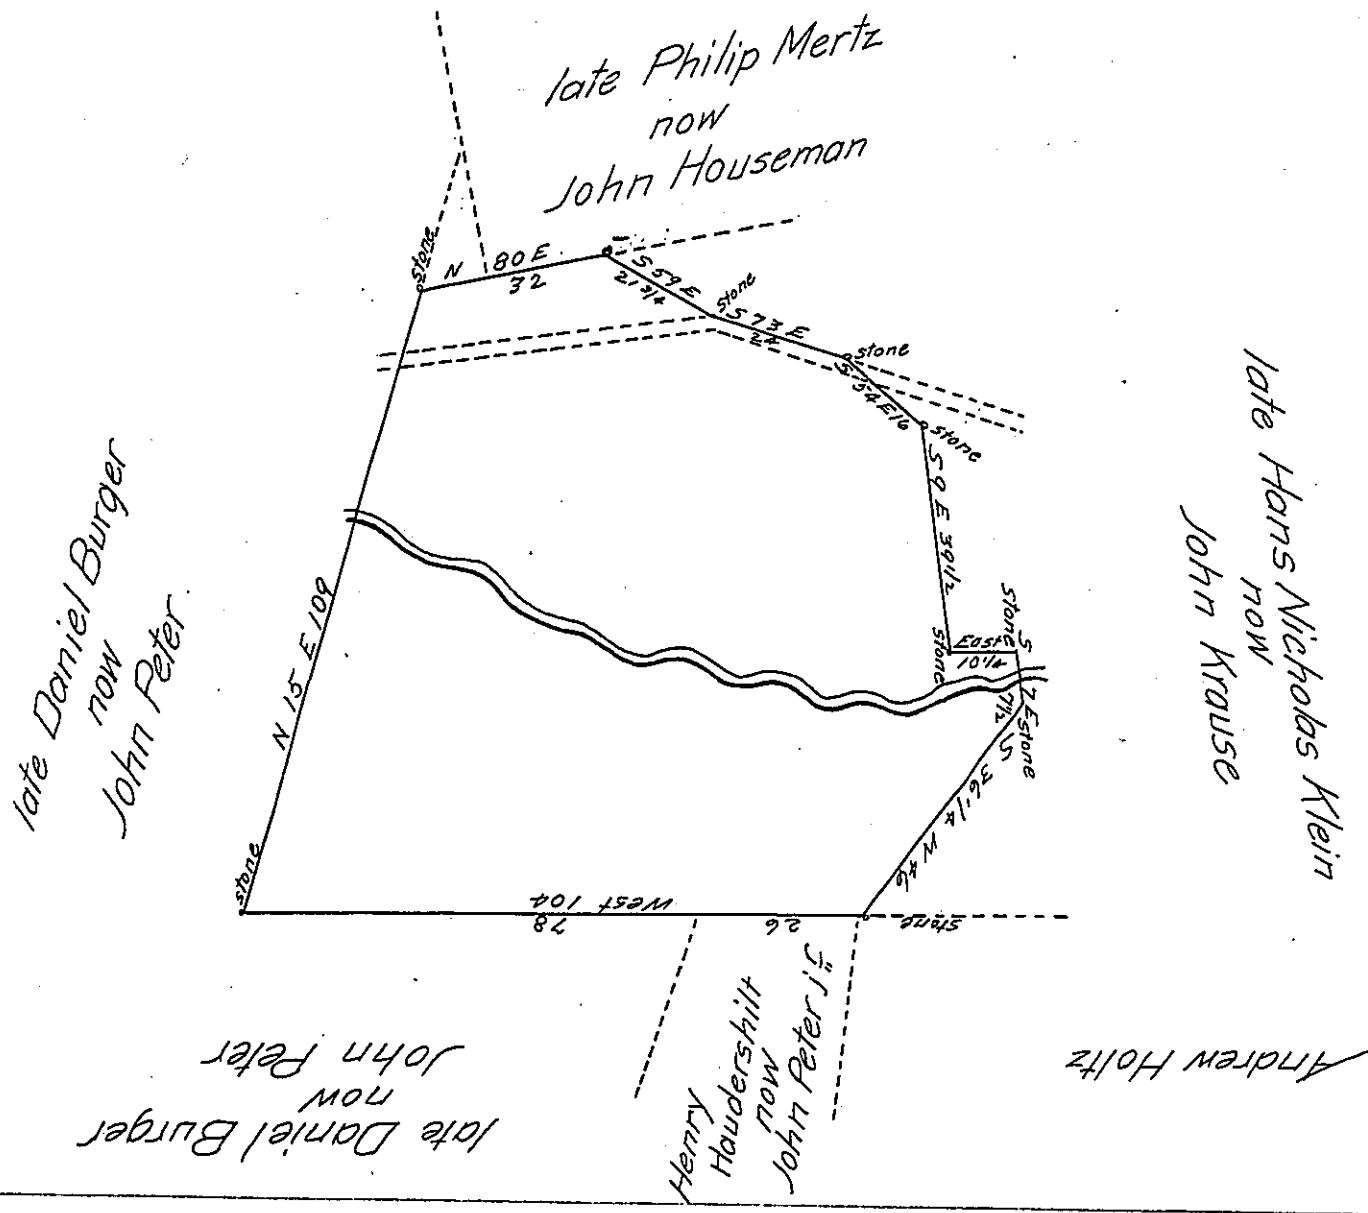 late Philip Mertz
now
John Houseman
stone
N 80 E
32
S 59 E
21 3/4
stone
S 73 E
24
stone
S 54 E 16
stone
S 9 E 39 1/2
stone
East
10 1/4
stone
S 7 E
7 1/2
stone
S 36 1/4 W 46
stone
West 104
26
78
stone
N 15 E 109
late Daniel Burger
now
John Peter
late Hans Nicholas Klein
now
John Krause
late Daniel Burger
now
John Peter
Henry
Haudershilt
now
John Peter jr
Andrew Holtz